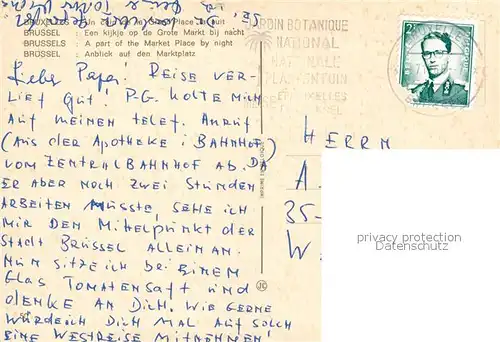 BRUXELLES : Un coin de la Grand'Place la nuit
BRUSSEL : Een kijkje op de Grote Markt bij nacht
BRUSSELS : A part of the Market Place by night
BRÜSSEL : Anblick auf den Marktplatz
JARDIN BOTANIQUE
NATIONAL
NATIONALE
PLANTENTUIN
BRUXELLES
2F
Lieber Papa! REISE VER-
LIEF GUT. P-G. HOLTE MICH
AUF MEINEN TELEF. ANRUF
(AUS DER APOTHEKE i. BAHNHOF)
VOM ZENTRALBAHNHOF AB. DA
ER ABER NOCH ZWEI STUNDEN
ARBEITEN MÜSSTE, SEHE ICH
MIR DEN MITTELPUNKT DER
STADT BRÜSSEL ALLEIN AN.
NUN SITZE ICH BEI EINEM
GLAS TOMATENSAFT UND
DENKE AN DICH. WIE GERNE
WÜRDE ICH DICH MAL AUF SOLCH
EINE WESTREISE MITNEHMEN!
HERRN
A.
35-
W.
privacy protection
Datenschutz